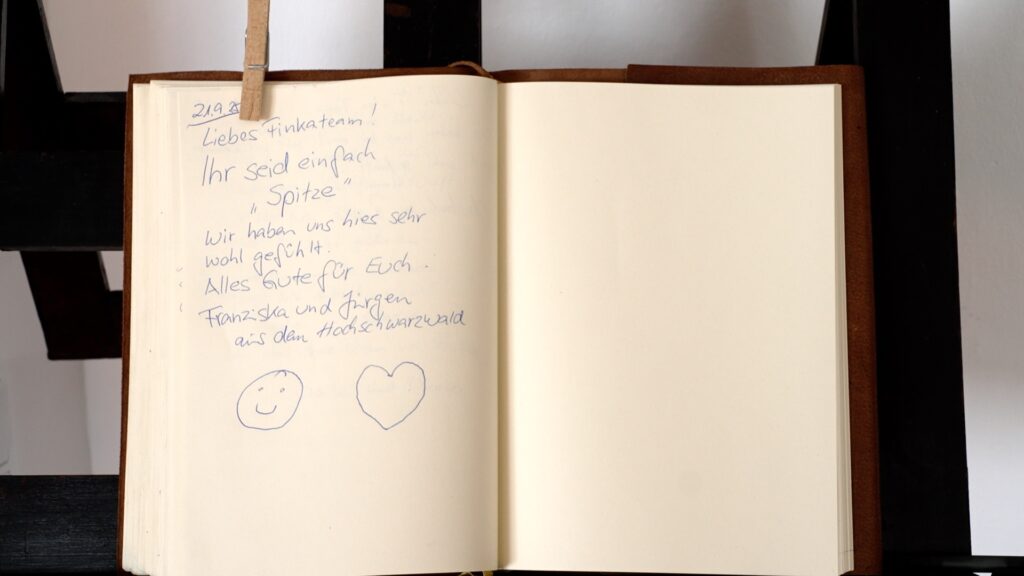 21.9.
Liebes Finkateam!
Ihr seid einfach
„Spitze"
Wir haben uns hies sehr
wohl gefühlt.
Alles Gute für Euch.
Franziska und Jürgen
aus dem Hochschwarzwald